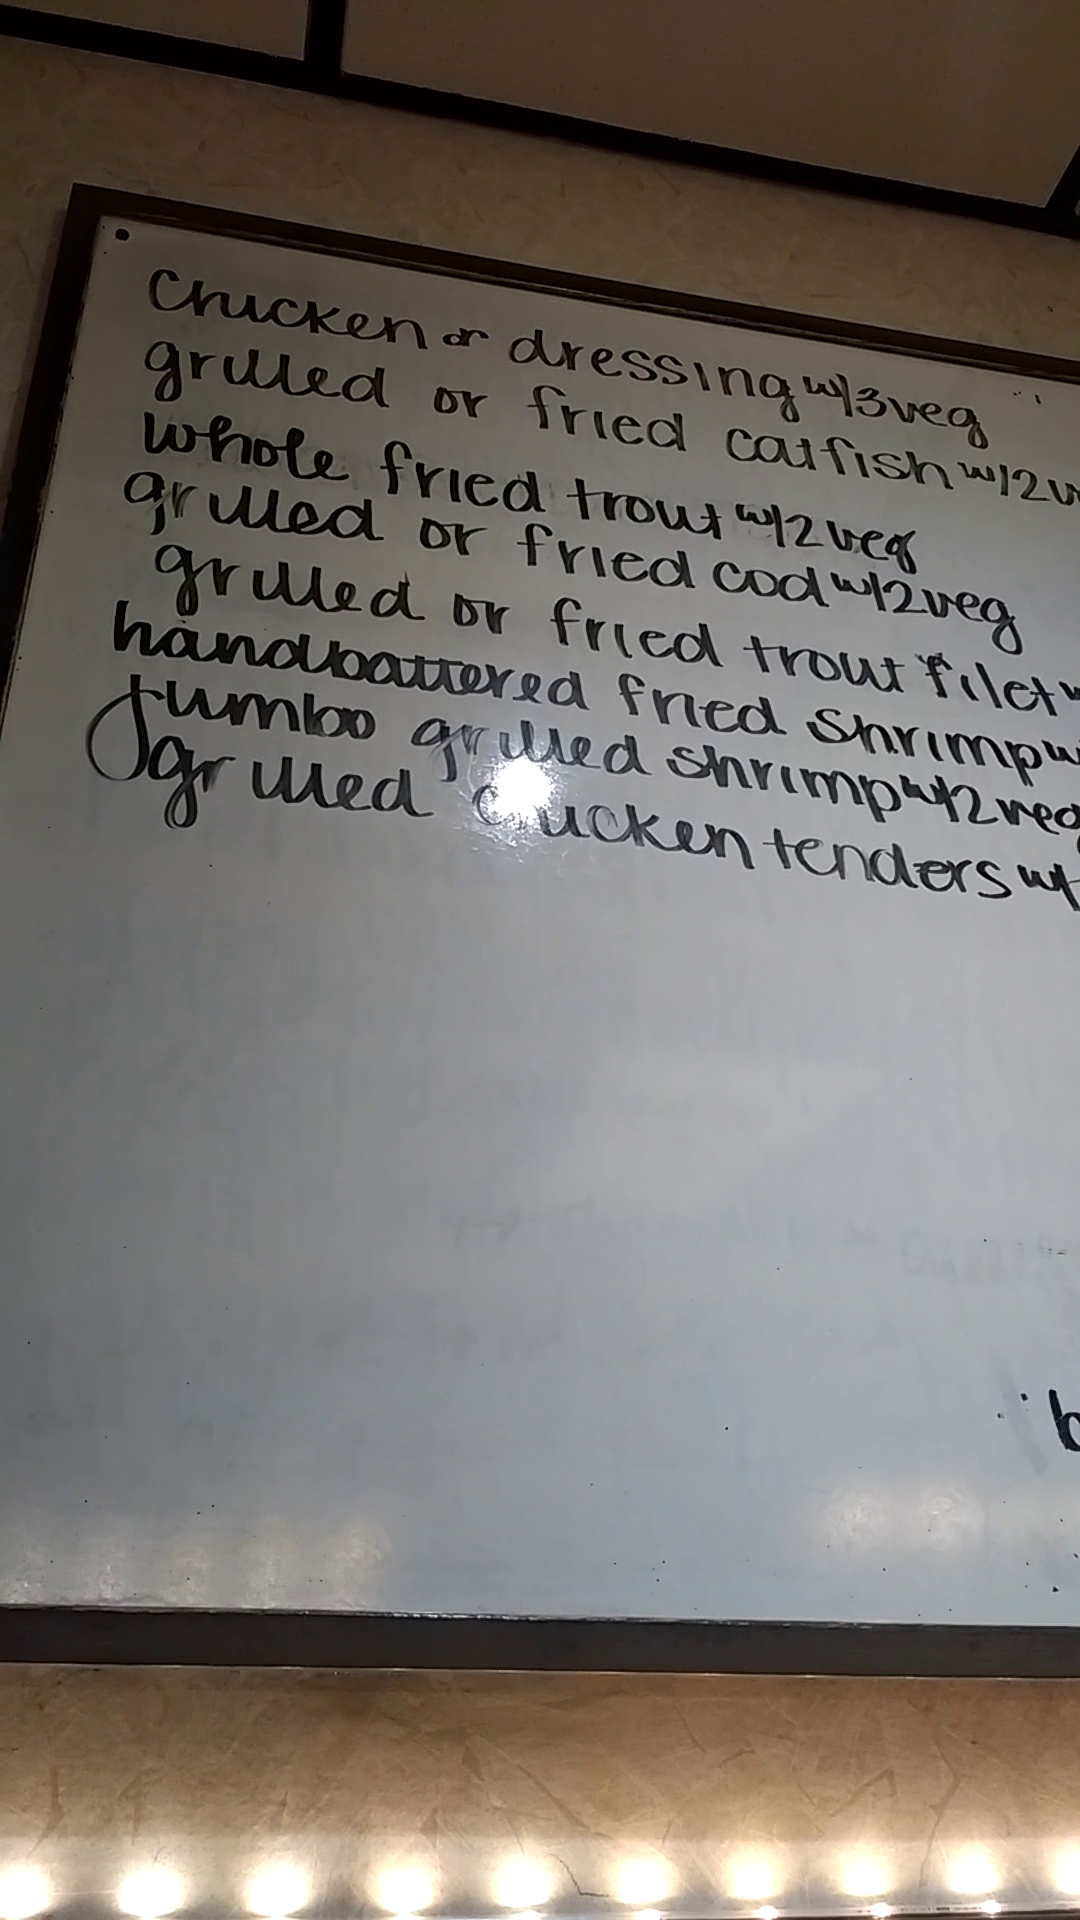 Chicken or dressing w/3veg
grilled or fried catfish w/2v
whole fried trout w/2 veg
grilled or fried cod w/2veg
grilled or fried trout filet w
handbattered fried shrimp w
Jumbo grilled shrimp w/2 veg
grilled chicken tenders w/
b